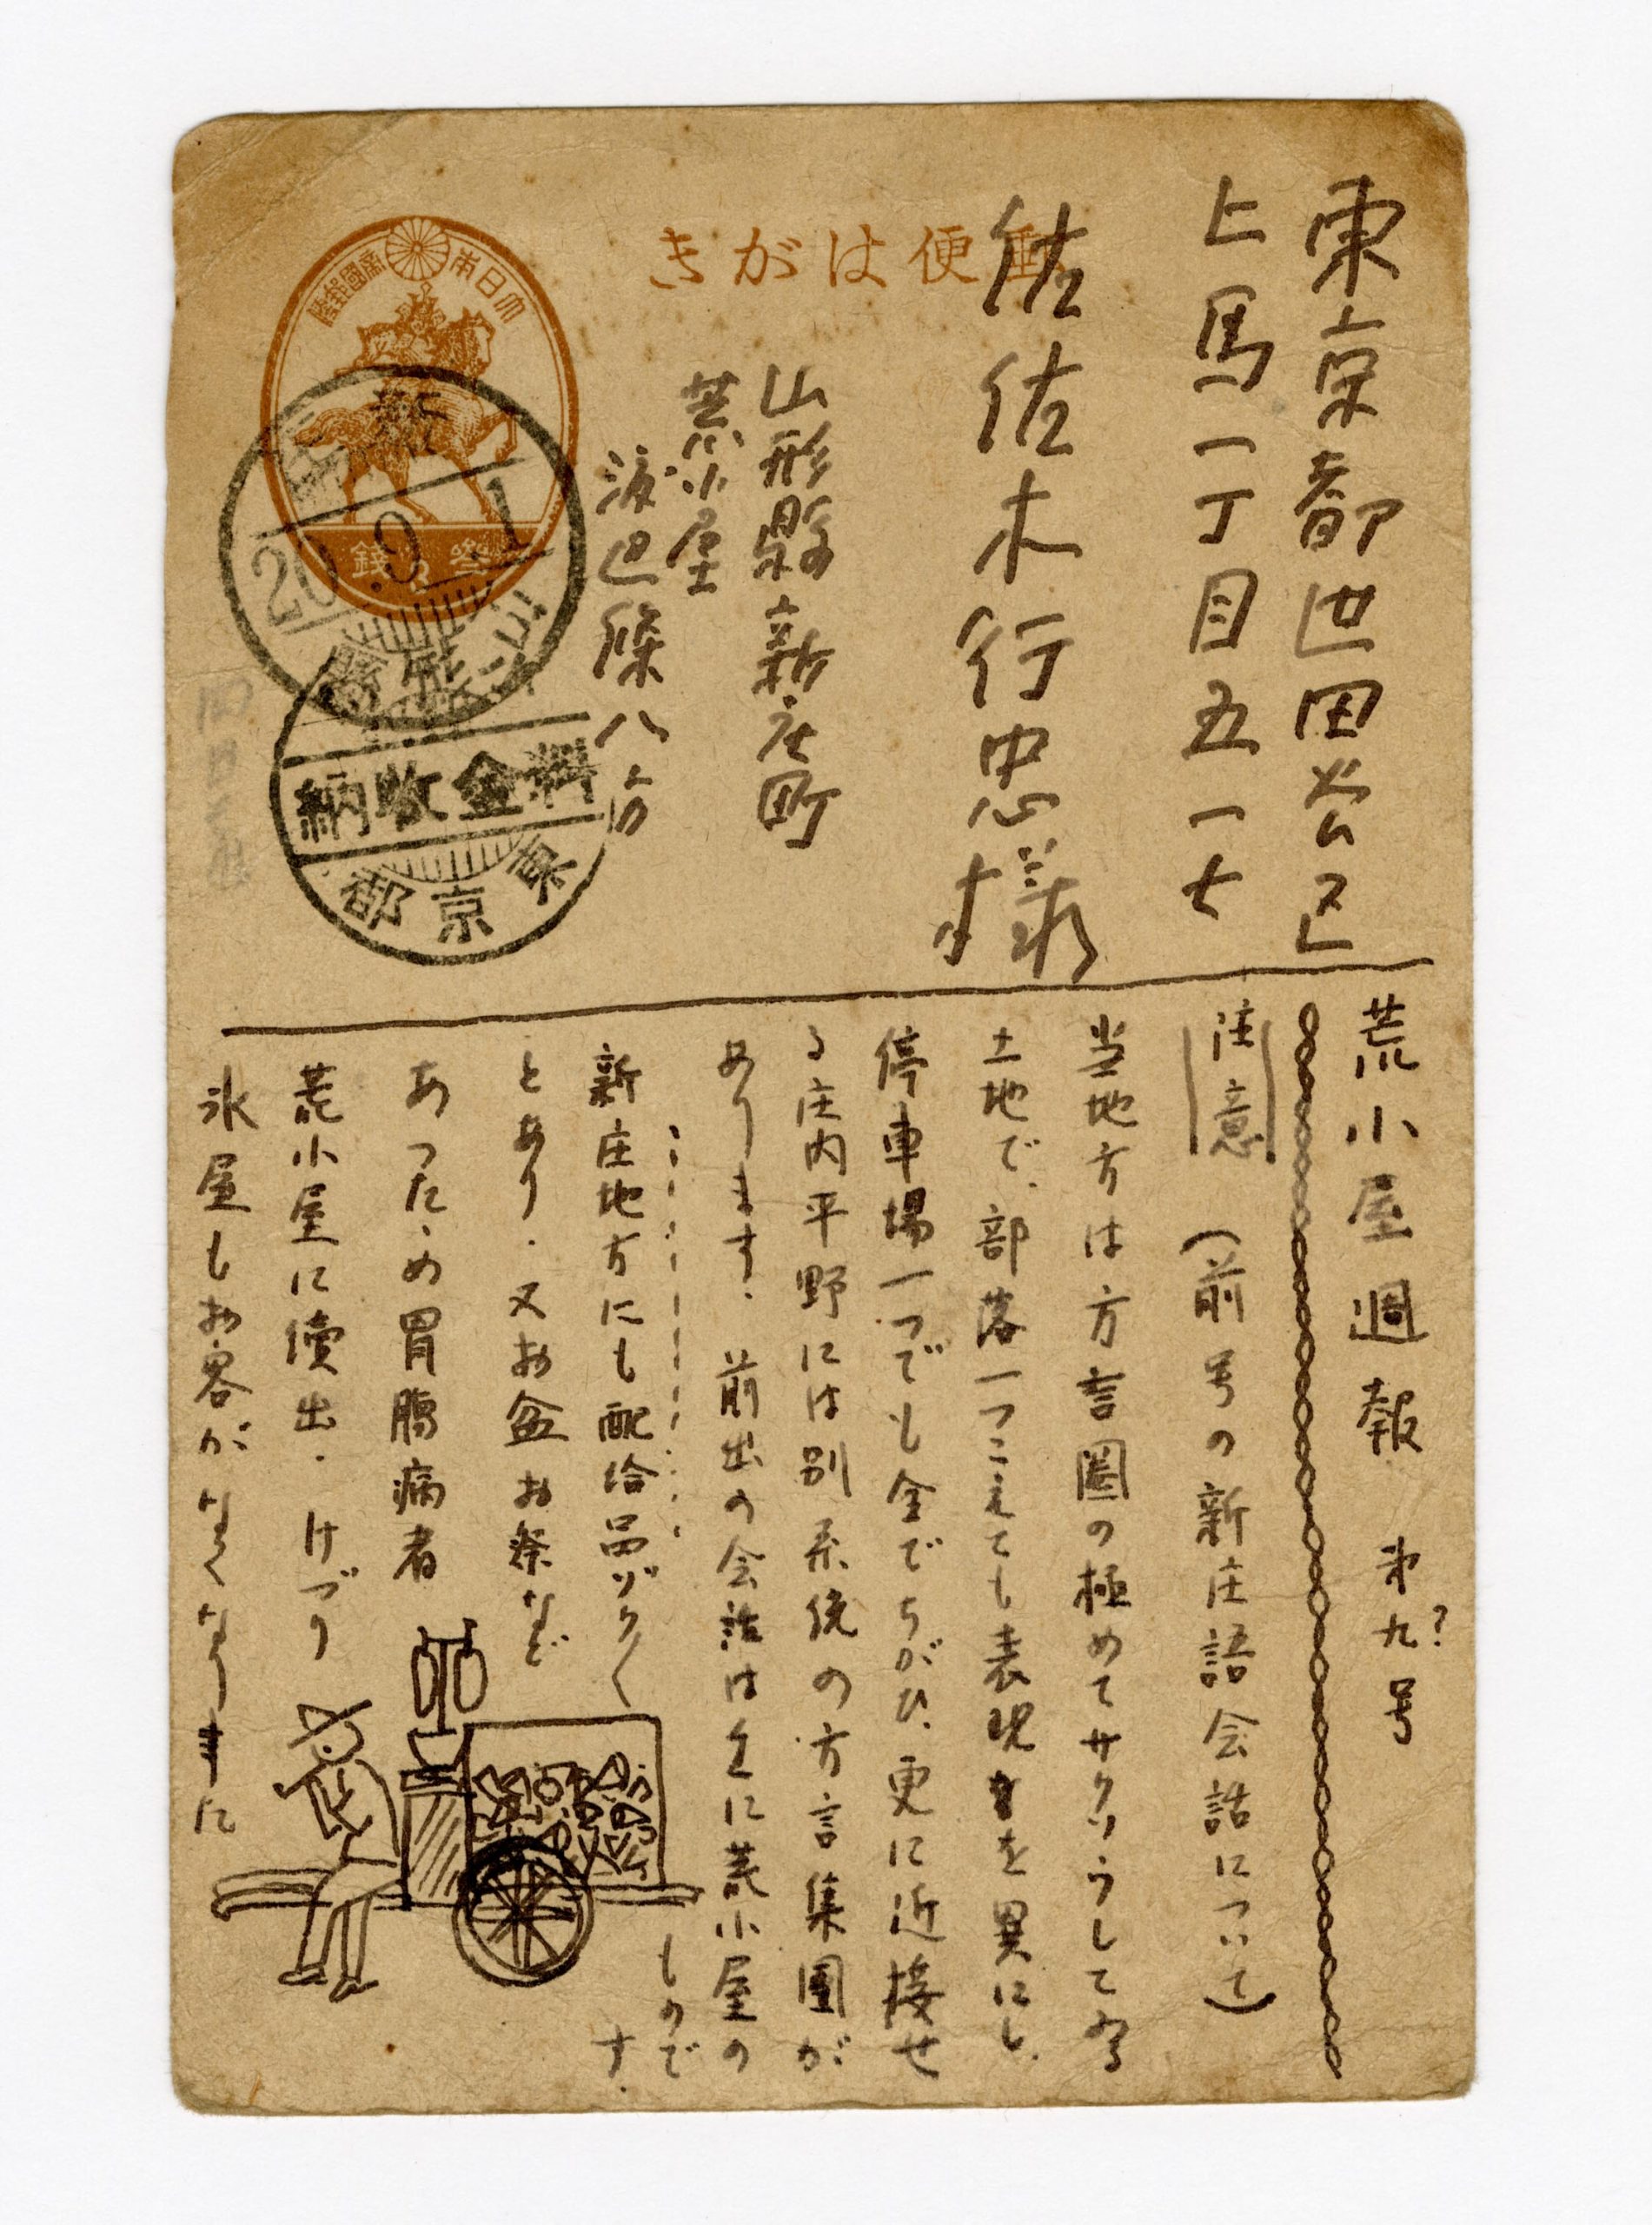 郵便はがき
大日本帝國郵便
参錢
新庄
20.9.1
料金收納
東京都
東京都世田谷区
上馬一丁目五一七
佐佐木行忠様
山形縣新庄町
荒小屋
渡辺條八方
荒小屋週報 第九?号
注意 (前号の新庄語会話について)
当地方は方言圏の極めてサクソウしてゐる
土地で、部落一つこえても表現を異にし、
停車場一つでも全でちがひ、更に近接せ
る庄内平野には別系統の方言集團が
あります. 前出の会話は主に荒小屋の
もので
す.
新庄地方にも配給品ゾク〱
とあり. 又お盆お祭など
あつたゝめ胃腸病者
荒小屋に續出. けづり
氷屋もお客がなくなりました